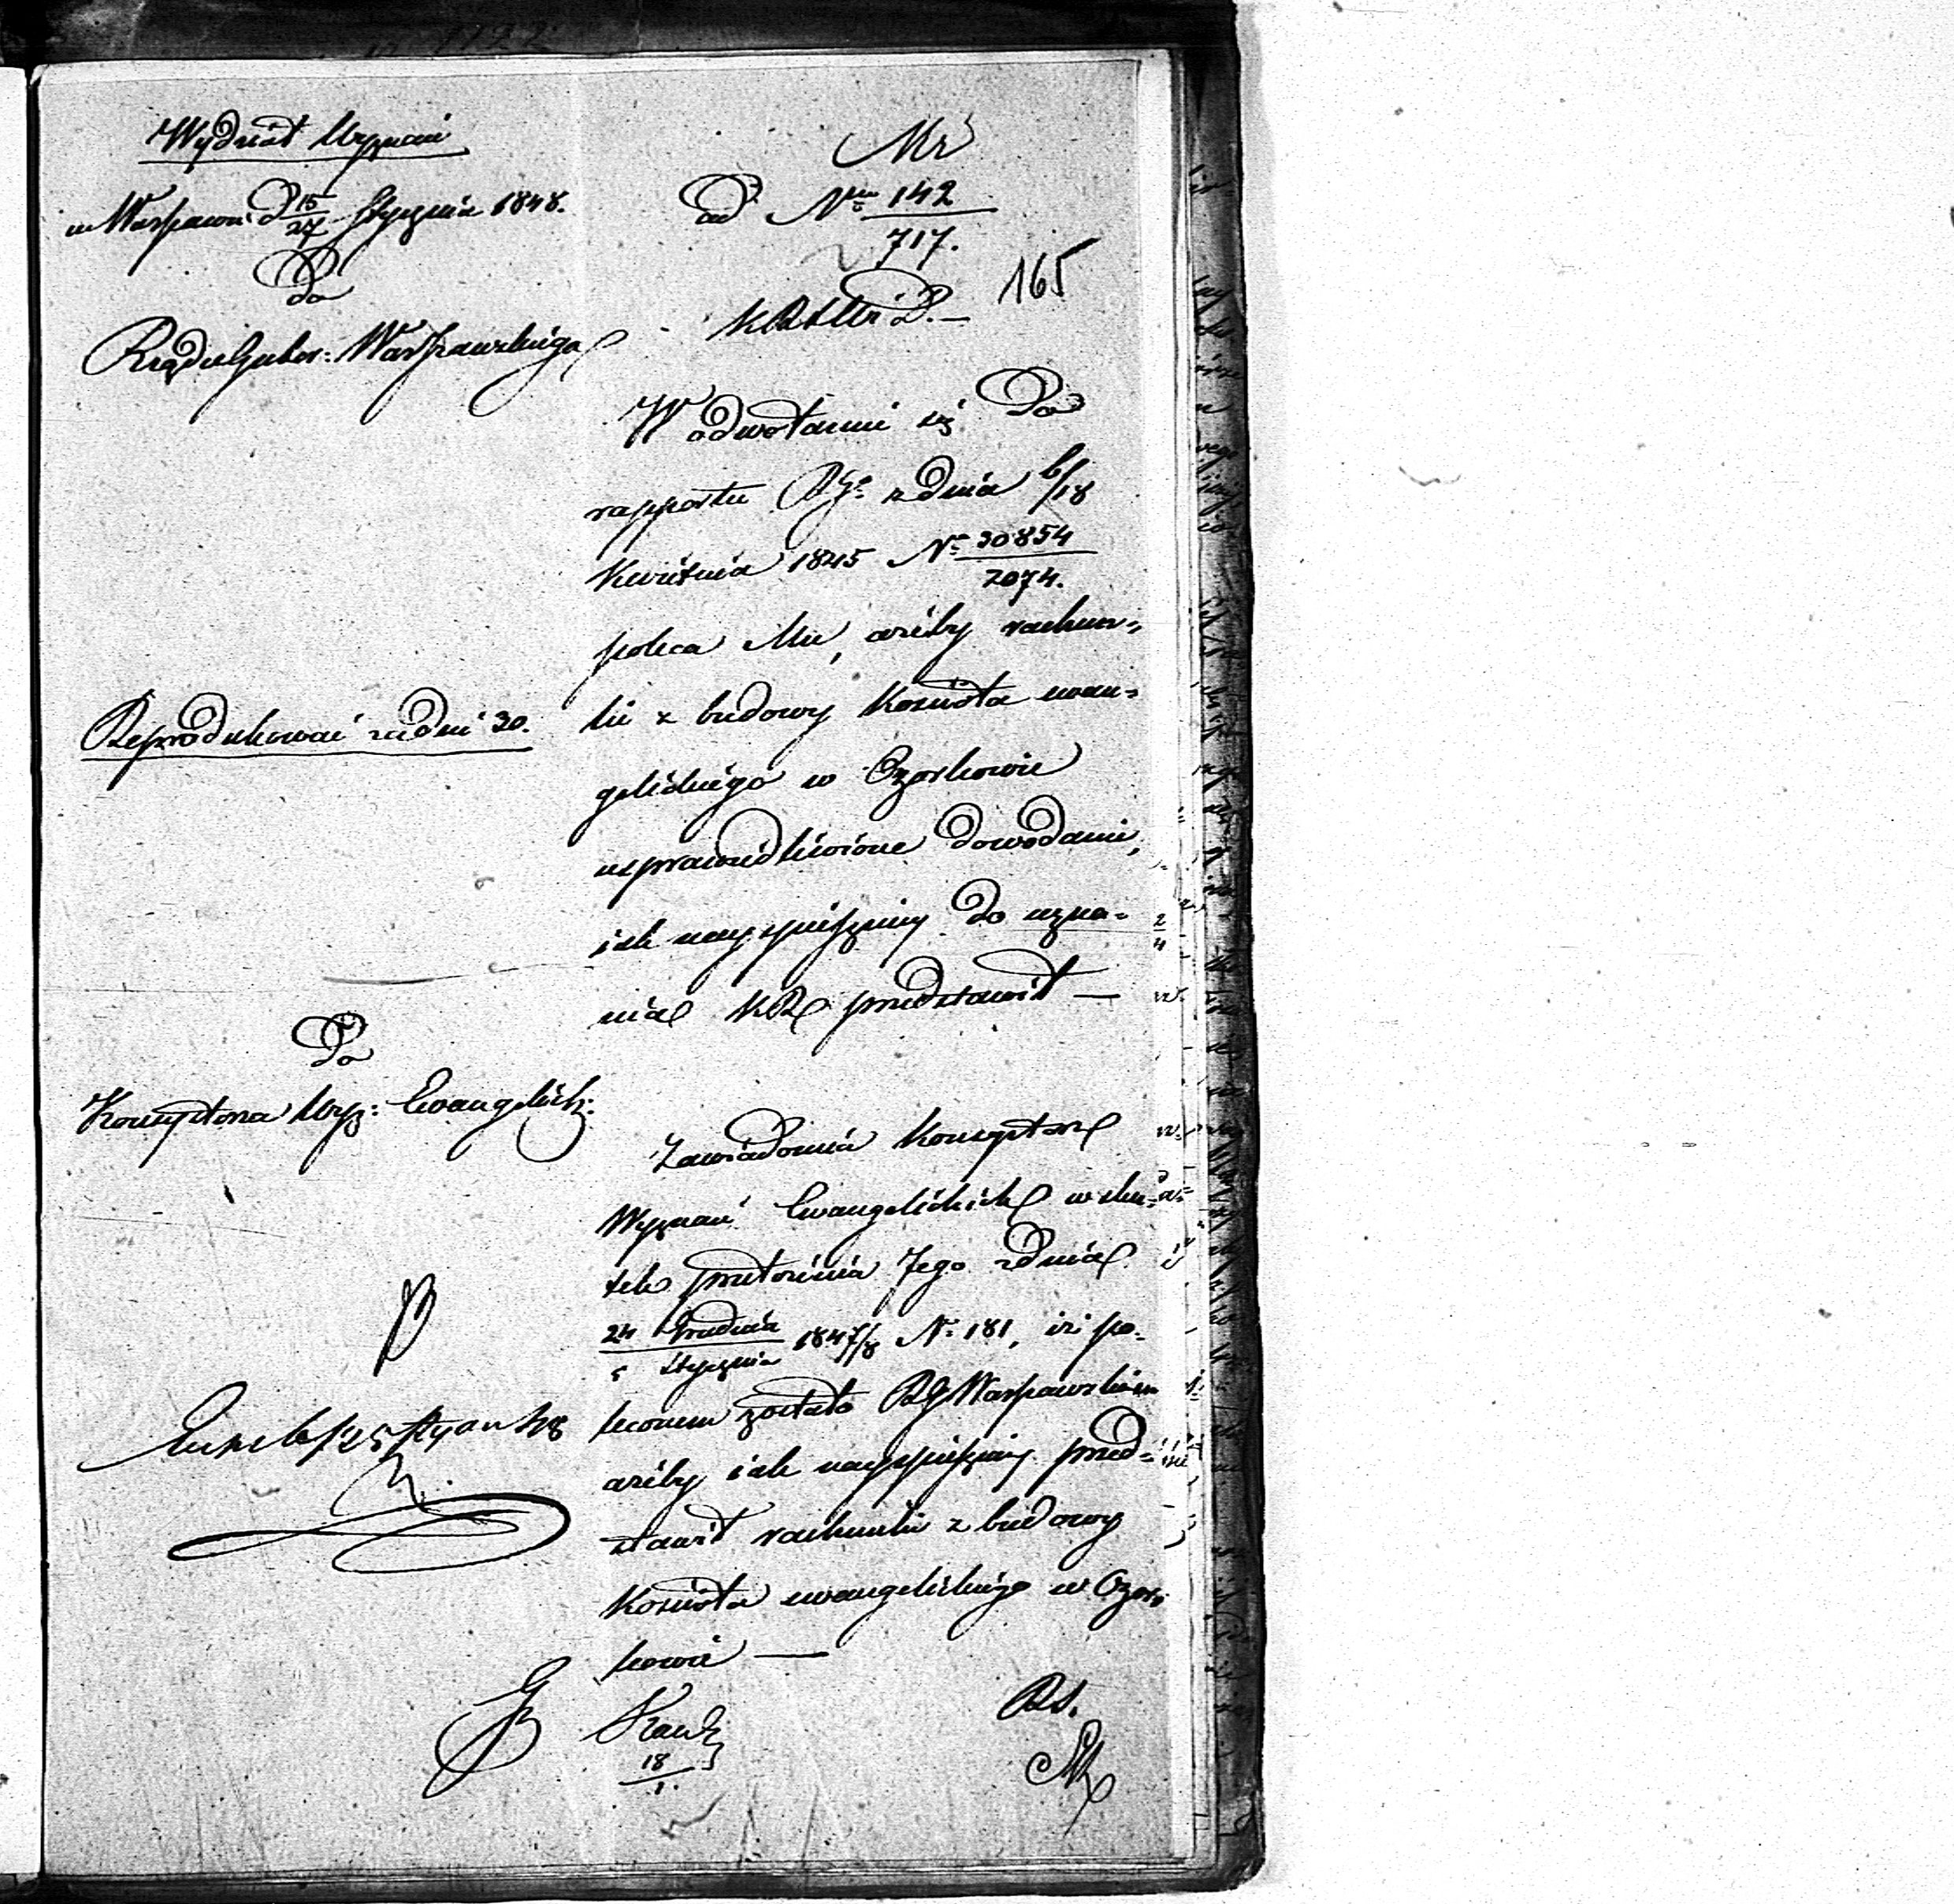 Wydział Wyznań
w Warszawie d 15/27 Stycznia 1848.
Do
Rządu Guber: Warszawskiego
Mr
ad Nrm 142/717.
165
KRSW i D.—
W odwołaniu się do
rapportu RGo z dnia 6/18
Kwietnia 1845 No 30854/2074.
poleca Mu, ażeby rachun=
ki z budowy Kościoła ewan=
gelickiego w Ozorkowie
usprawiedliwione dowodami,
jak najspieszniej do uzna=
nia KR przedstawił —
Reprodukować za dni 30.
Do
Konsystorza Wyz: Ewangelick:
Zawiadomia Konsystorz
Wyznań Ewangelickich w sku=
tek przełożenia Jego z dnia
24 Grudnia/5 Stycznia 1847/8 No 181, iż po=
leconem zostało RG Warszawskiem
ażeby jak najspieszniej przed=
stawił rachunki z budowy
Kościoła ewangelickiego w Ozor=
kowie —
18/1.